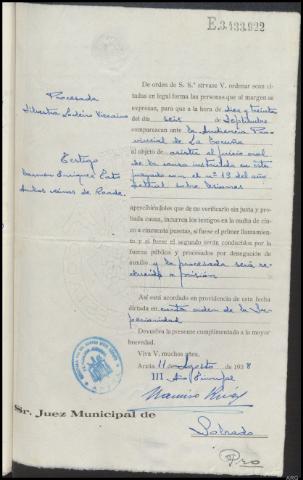 E.3.133.922
De orden de S. S.ª sirvase V. ordenar sean ci-
tadas en legal forma las personas que al margen se
expresan, para que a la hora de diez y treinta
del día seis de Septiembre
comparezcan ante la Audiencia Pro
vincial de La Coruña
al objeto de asistir al juicio oral
de la causa instruida en este
juzgado con el nº 13 del año
actual sobre lesiones
apercibiéndoles que de no verificarlo sin justa y pro-
bada causa, incurren los testigos en la multa de cin-
co a cincuenta pesetas, si fuese el primer llamamien-
to y si fuere el segundo serán conducidos por la
fuerza pública y procesados por denegación de
auxilio y la procesada será re-
ducida a prisión
Así está acordado en providencia de esta fecha
dictada en carta orden de la Su-
perioridad
Devuelva la presente cumplimentada a la mayor
brevedad.
Viva V. muchos años.
Arzúa 11 Agosto de 1938
III Año Triunfal
Procesada
Silvestra
Testigo
Ramón
Ambos vecinos de
Sr. Juez Municipal de
Sobrado